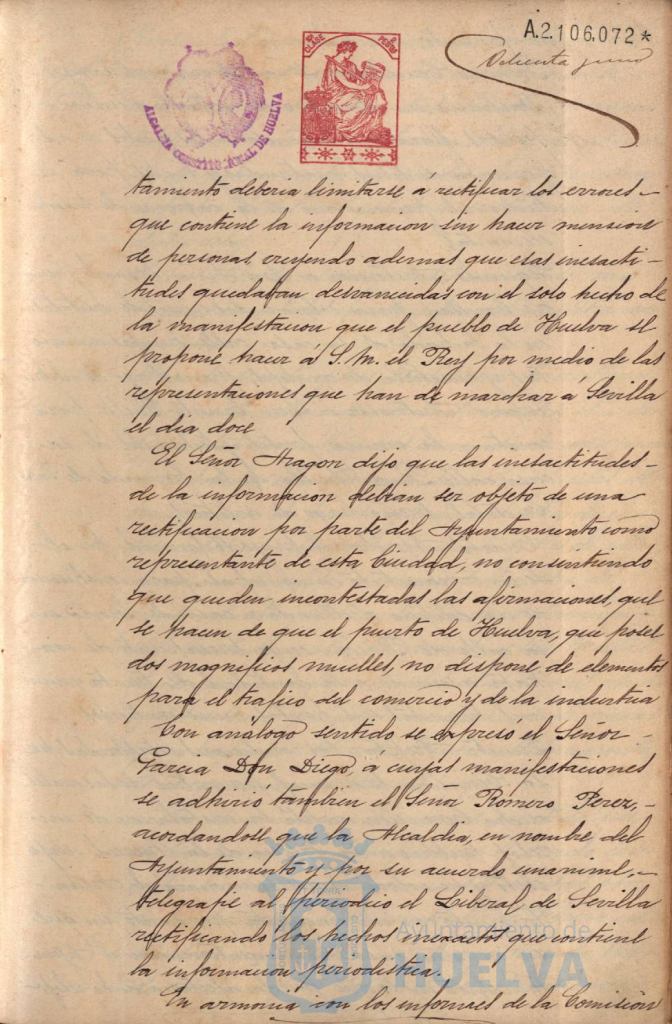 A.2.106,072*
Ochenta y uno
10ª CLASE PESETAS
ALCALDIA CONSTITUCIONAL DE HUELVA
tamiento deberia limitarse á rectificar los errores-
que contiene la informacion sin hacer mension
de personas, creyendo ademas que esas inesacti-
tudes quedaban desvanecidas con el solo hecho de
la manifestacion que el pueblo de Huelva se
propone hacer á S. M. el Rey por medio de las
representaciones que han de marchar á Sevilla
el dia doce
El Señor Aragon dijo que las inesactitudes-
de la informacion debian ser objeto de una
rectificacion por parte del Ayuntamiento como
representante de esta Ciudad, no consintiendo
que queden incontestadas las afirmaciones, que
se hacen de que el puerto de Huelva, que posee
dos magnificos muelles, no dispone de elementos
para el trafico del comercio y de la industria
Con análogo sentido se expresó el Señor-
Garcia Don Diego, á cuyas manifestaciones
se adhirió tambien el Señor Romero Perez,-
acordandose que la Alcaldia, en nombre del
Ayuntamiento y por su acuerdo unanime,-
telegrafie al periodico el Liberal de Sevilla
rectificando los hechos inexactos que contiene
la informacion periodistica.
En armonia con los informes de la Comisión
Ayuntamiento de
HUELVA